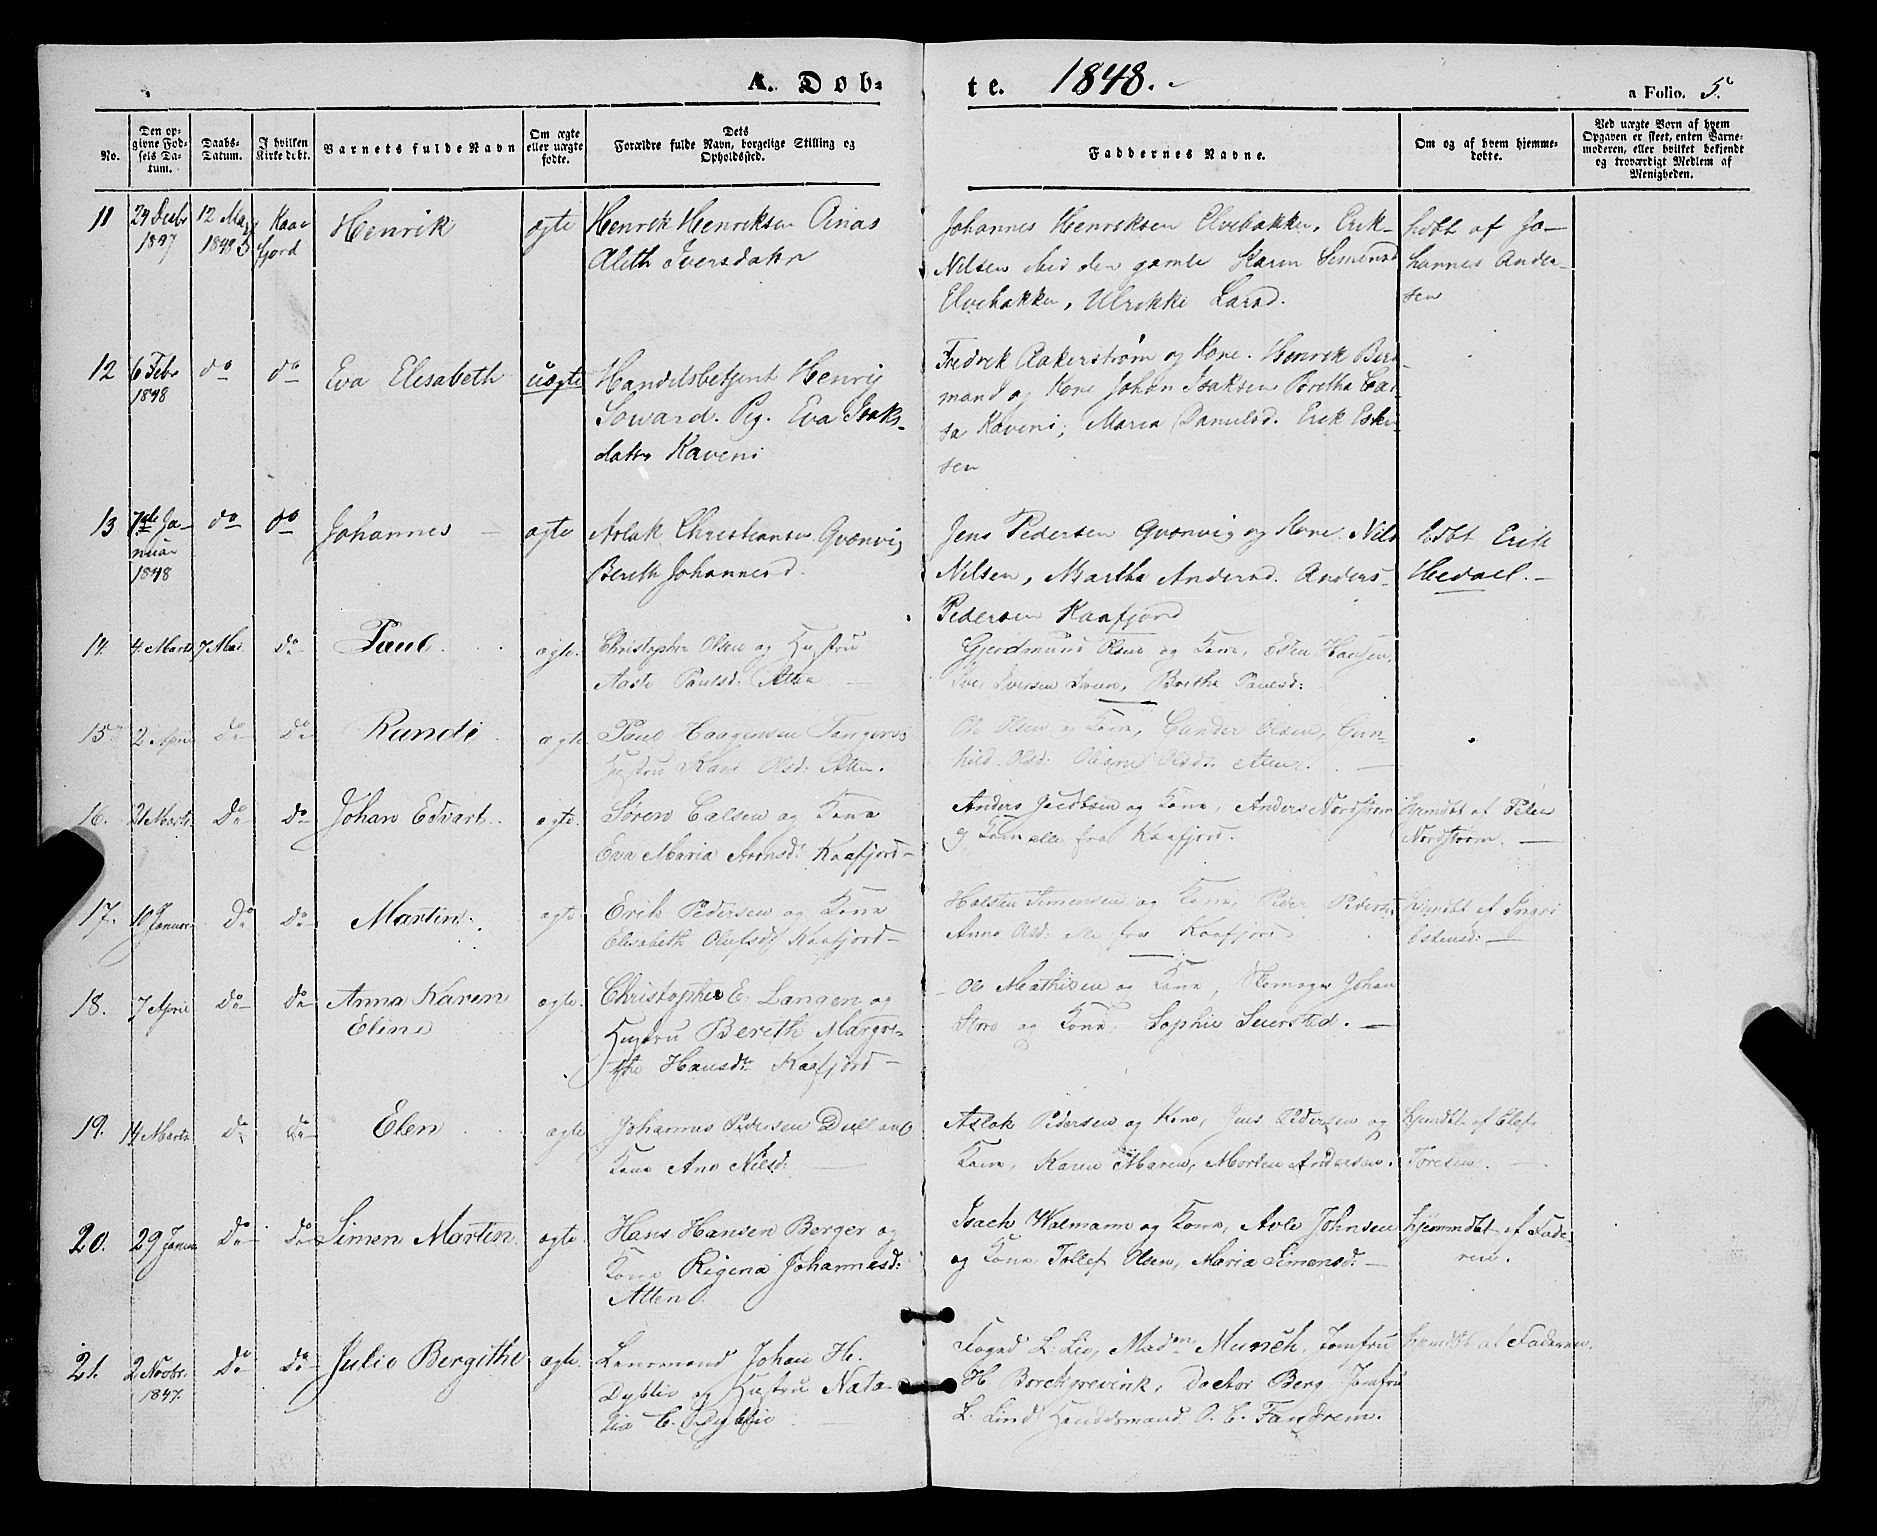 A. Døb-
te. 1848.
a Folio. 5.
No.
Den op-
givne Fød-
sels Da-
tum.
Daabs-
Datum.
I hvilken
Kirke døbt.
Barnets fulde Navn
Om ægte
eller uægte
fødte.
Dets
Forældre fulde Navn, borgelige Stilling og
Opholdssted.
Faddernes Navne.
Om og af hvem hjemme-
døbte.
Ved uægte Børn af hvem
Opgaven er skeet, enten Barne-
moderen, eller hvilket bekjendt
og troværdigt Medlem af
Menigheden.
11
1847
12
1848
Kaa-
fjord
Henrik
ægte
Henrik Henriksen Ainas
Aleth Iversdatr
Johannes Henriksen Elvebakken, Erik
Nilsen den gamle Karen Simensd
Elvebakken, Ulrikke Larsd.
af Jo-
hannes Ander-
sen
12
6 Febr
1848
do
do
Eva Elisabeth
uægte
Handelsbetjent Henrij
Soward. Pig. Eva Isaks-
datr Kaveni
Fredrik Aakerstrøm og Kone. Henrik Ber
mand og Kone Johan Isaksen
Kaveni, Maria Danielsd. Erik
sen
13
Ja-
nuar
1848
do
do
Johannes
ægte
Aslak Christiansen Qvænvig
Bereth Johannesd.
Jens Pedersen Qvænvig og Kone. Nils
Nilsen, Martha Andersd. Anders
Pedersen Kaafjord
Erik
Hedael.
14.
4. Marts
7 Mai
Do
Paul
ægte.
Christopher Olsen og Hustru
Aaste Paulsd: Alten
Gjermund Olsen og Kone, Hansen,
Iversen Berthe Paulsd:
15
2 April
Do
Do
Randi
ægte
Paul Haagensen Tangeros
Hustru Kari Olsd: Alten.
Ole Olsen og Kone, Gunder Olsen, Gun-
hild Olsd: Olsd: Alten.
16.
21 Marts.
Do
Do
Johan Edvart.
ægte.
Søren Calsen og Kone
Eva Maria Arensd: Kaafjord
Anders Jacobsen og Kone, Anders Nordstrøm
og Kone alle fra Kaafjord.
Hjemdbt af Peter
Nordstrøm.
17.
10 Januar
Do
Do
Martin.
ægte
Erik Pedersen og Kone
Elisabeth Olufsd: Kaafjord
Halsten Simensen og Kone, Peder Pedersen
Anne Olsd: alle fra Kaafjord
Hjemdbt af Ingri
Estensd:
18.
7 April
Do
Do
Anna Karen
Eline
ægte.
Christopher E. Langen og
Hustru Bereth Margre-
the Hansdtr Kaafjord
Ole Mathisen og Kone, Skomager Johan
og Kone, Sophie Seiersted.
19.
14 Marts
Do
Do
Elen
ægte
Johannes Pedersen og
Kone Ane Nilsd:
Aslak Pedersen og Kone, Jens Pedersen og
Kone, Karen Maren, Morten Andersen.
Hjemdbt af
Toresen.
20.
29 Januar
Do
Do
Simon Martin
ægte
Hans Hansen Berger og
Kone Regina Johannesd:
Alten.
Isach Walmann og Kone, Arle Johnsen
og Kone, Tollef Olsen, Maria Simensd:
Hjemmdbt af Fade-
ren.
21.
2 Novbr.
1847.
Do
Do
Julie Bergithe
ægte.
Lensmand Johan H.
Dyblie og Hustru Nata-
lia C. Dyblie
Foged L. Lie, Madm Munch, Jomfru
H. Borchgrevink, Doctor Berg Jomfru
L. Lind Handelsmand P. C. Fandrem.
Hjemdbt af Faderen.